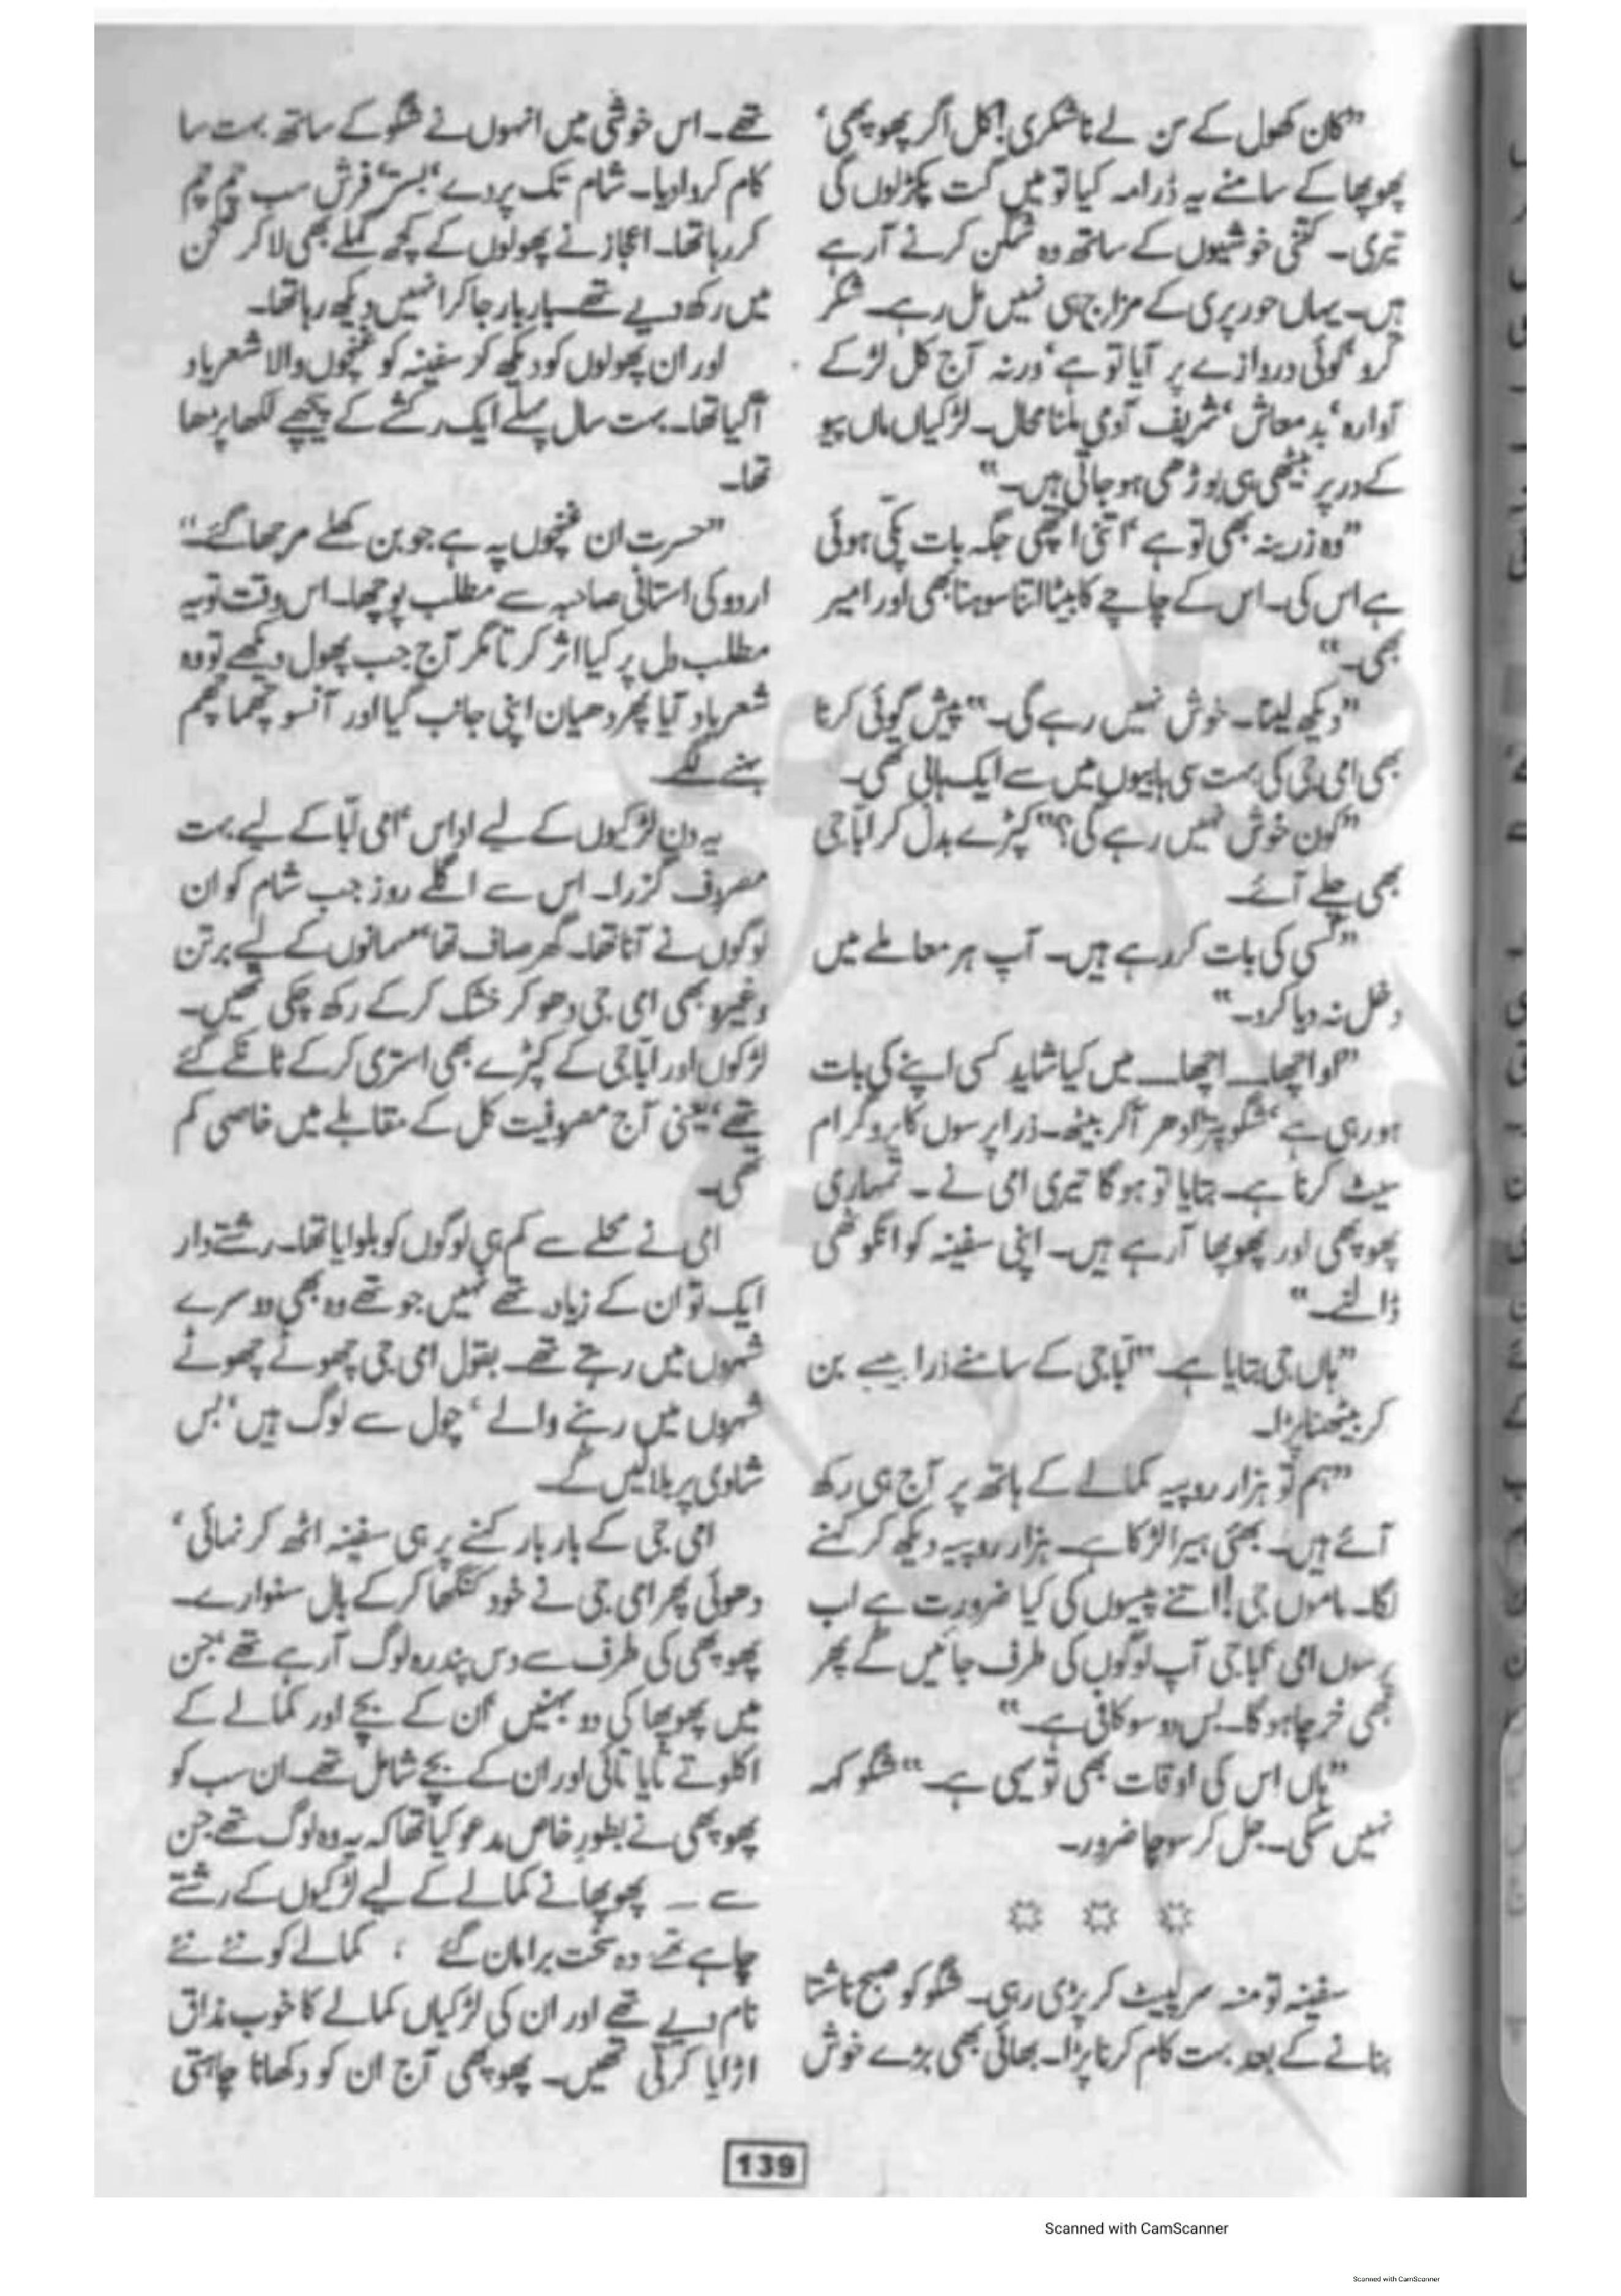 ”کان کھول کے سن لے ناشکری! کل اگر پھوپھی‘
پھوپھا کے سامنے یہ ڈرامہ کیا تو میں گت پکڑ لوں گی
تیری۔ کتنی خوشیوں کے ساتھ وہ شگن کرنے آرہے
ہیں۔ یہاں حور پری کے مزاج ہی نہیں مل رہے۔ شکر
کرو‘ کوئی دروازے پر آیا تو ہے‘ ورنہ آج کل لڑکے
آوارہ‘ بدمعاش‘ شریف آدمی ملنا محال۔ لڑکیاں ماں پیو
کے در پر بیٹھی ہی بوڑھی ہو جاتی ہیں۔“
”وہ زرینہ بھی تو ہے‘ اتنی اچھی جگہ بات پکی ہوئی
ہے اس کی۔ اس کے چاچے کا بیٹا اتنا سوہنا بھی اور امیر
بھی۔“
”دیکھ لینا۔ خوش نہیں رہے گی۔“ پیش گوئی کرنا
بھی امی جی کی بہت سی ہابیوں میں سے ایک ہابی تھی۔
”کون خوش نہیں رہے گی؟“ کپڑے بدل کر اباجی
بھی چلے آئے۔
”کسی کی بات کر رہے ہیں۔ آپ ہر معاملے میں
دخل نہ دیا کرو۔“
”او اچھا۔۔ اچھا۔۔ میں کیا شاید کسی اپنے کی بات
ہو رہی ہے‘ شگو پتر ادھر آکر بیٹھ۔ ذرا پرسوں کا پروگرام
سیٹ کرنا ہے۔ بتایا تو ہوگا تیری امی نے۔ تمہاری
پھوپھی اور پھوپھا آرہے ہیں۔ اپنی سفینہ کو انگوٹھی
ڈالنے۔“
”ہاں جی بتایا ہے۔“ اباجی کے سامنے ذرا بن
کر بیٹھنا پڑا۔
”ہم تو ہزار روپیہ کمالے کے ہاتھ پر آج ہی رکھ
آئے ہیں۔ بھئی ہیرا لڑکا ہے۔ ہزار روپیہ دیکھ کر کہنے
لگا۔ ماموں جی! اتنے پیسوں کی کیا ضرورت ہے اب
پرسوں امی‘ اباجی آپ لوگوں کی طرف جائیں گے پھر
بھی خرچا ہوگا۔ بس دو سو کافی ہے۔“
”ہاں اس کی اوقات بھی تو یہی ہے۔“ شگو کہہ
نہیں سکی۔ جل کر سوچا ضرور۔
☼ ☼ ☼
سفینہ تو منہ سر لپیٹ کر پڑی رہی۔ شگو کو صبح ناشتا
بنانے کے بعد بہت کام کرنا پڑا۔ بھائی بھی بڑے خوش
تھے۔ اس خوشی میں انہوں نے شگو کے ساتھ بہت سا
کام کروا دیا۔ شام تک پردے‘ بستر‘ فرش سب چم چم
کر رہا تھا۔ اعجاز نے پھولوں کے کچھ گملے بھی لا کر صحن
میں رکھ دیے تھے۔ بار بار جا کر انہیں دیکھ رہا تھا۔
اور ان پھولوں کو دیکھ کر سفینہ کو غنچوں والا شعر یاد
آگیا تھا۔ بہت سال پہلے ایک رکشے کے پیچھے لکھا پڑھا
تھا۔
”حسرت ان غنچوں پہ ہے جو بن کھلے مرجھا گئے“
اردو کی استانی صاحبہ سے مطلب پوچھا۔ اس وقت تو یہ
مطلب دل پر کیا اثر کرتا مگر آج جب پھول دیکھے تو وہ
شعر یاد آیا پھر دھیان اپنی جانب گیا اور آنسو چھما چھم
بہنے لگے۔
یہ دن لڑکیوں کے لیے اداس‘ امی ابا کے لیے بہت
مصروف گزرا۔ اس سے اگلے روز جب شام کو ان
لوگوں نے آنا تھا۔ گھر صاف تھا‘ مہمانوں کے لیے برتن
وغیرہ بھی امی جی دھو کر خشک کر کے رکھ چکی تھیں۔
لڑکوں اور اباجی کے کپڑے بھی استری کر کے ٹانگے گئے
تھے‘ یعنی آج مصروفیت کل کے مقابلے میں خاصی کم
تھی۔
امی نے محلے سے کم ہی لوگوں کو بلوایا تھا۔ رشتے دار
ایک تو ان کے زیادہ تھے نہیں جو تھے وہ بھی دوسرے
شہروں میں رہتے تھے۔ بقول امی جی چھوٹے چھوٹے
شہروں میں رہنے والے‘ چول سے لوگ ہیں‘ بس
شادی پر بلا لیں گے۔
امی جی کے بار بار کہنے پر ہی سفینہ اٹھ کر نہائی‘
دھوئی پھر امی جی نے خود کنگھا کر کے بال سنوارے۔
پھوپھی کی طرف سے دس پندرہ لوگ آرہے تھے‘ جن
میں پھوپھا کی دو بہنیں‘ ان کے بچے اور کمالے کے
اکلوتے تایا تائی اور ان کے بچے شامل تھے۔ ان سب کو
پھوپھی نے بطور خاص مدعو کیا تھا کہ یہ وہ لوگ تھے جن
سے ۔۔ پھوپھا نے کمالے کے لیے لڑکیوں کے رشتے
چاہے تھے‘ وہ سخت برا مان گئے ، کمالے کو نئے نئے
نام دیے تھے اور ان کی لڑکیاں کمالے کا خوب مذاق
اڑایا کرتی تھیں۔ پھوپھی آج ان کو دکھانا چاہتی
139
Scanned with CamScanner
Scanned with CamScanner